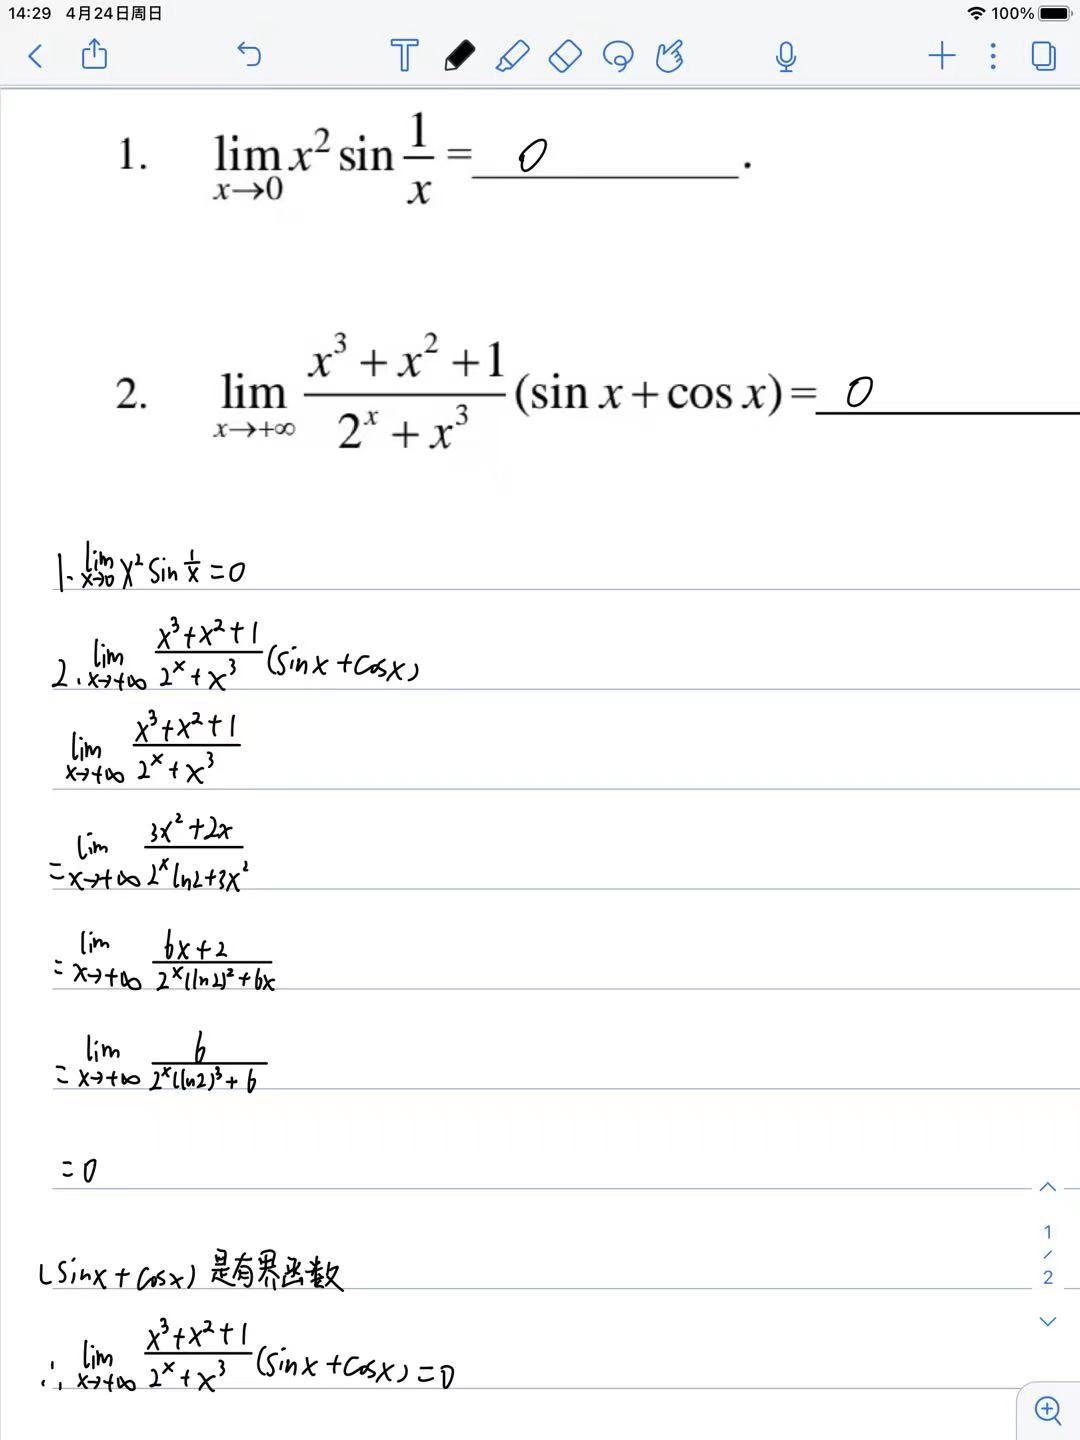 14:29 4月24日周日 100%
1. lim x→0 x² sin 1/x = 0 .
2. lim x→+∞ (x³ + x² + 1)/(2ˣ + x³) (sin x + cos x) = 0
1. lim x→0 x² sin 1/x = 0
2. lim x→+∞ (x³+x²+1)/(2ˣ+x³) (sinx+cosx)
lim x→+∞ (x³+x²+1)/(2ˣ+x³)
= lim x→+∞ (3x²+2x)/(2ˣln2+3x²)
= lim x→+∞ (6x+2)/(2ˣ(ln2)²+6x)
= lim x→+∞ 6/(2ˣ(ln2)³+6)
= 0
(sinx+cosx) 是有界函数
∴ lim x→+∞ (x³+x²+1)/(2ˣ+x³) (sinx+cosx) = 0
1
/
2